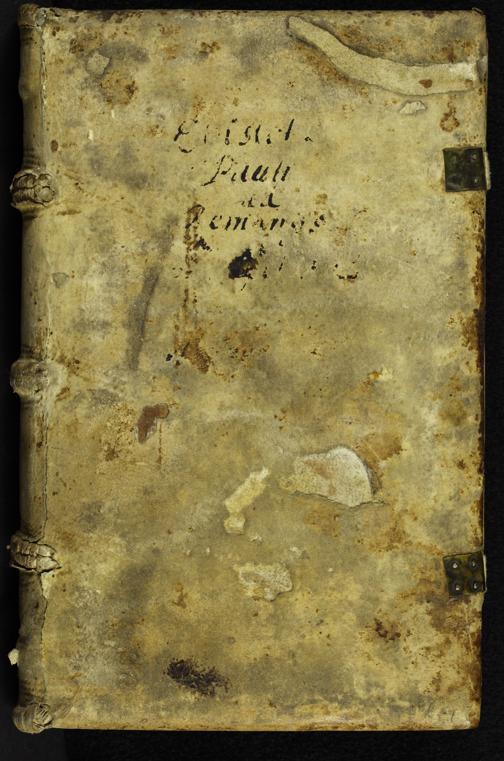 Epistol.
Pauli
ad
Romanos